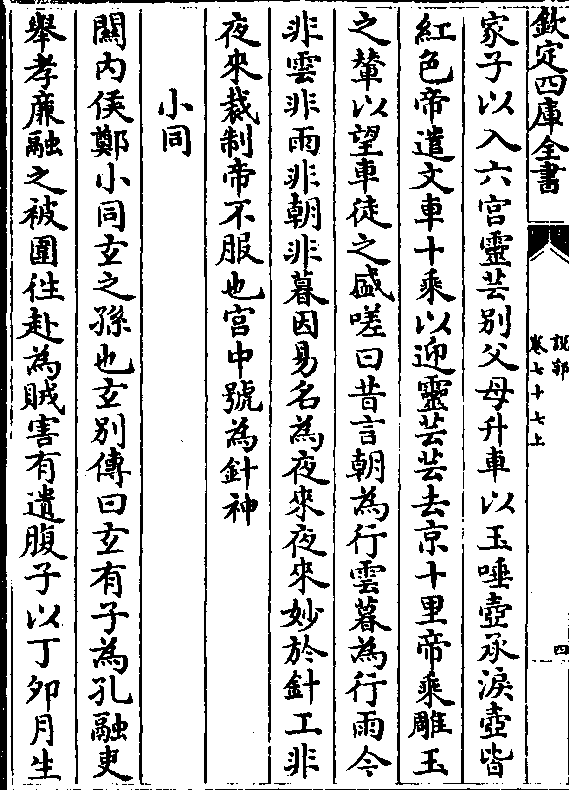 欽定四庫全書
說郛
卷七十七上
四
家子以入六宫靈芸别父母升車以玉唾壺承淚壺皆
紅色帝遣文車十乘以迎靈芸芸去京十里帝乘雕玉
之輦以望車徒之盛嗟曰昔言朝為行雲暮為行雨今
非雲非雨非朝非暮因易名為夜來夜來妙於針工非
夜來裁制帝不服也宫中號為針神
小同
關内侯鄭小同玄之孫也玄别傳曰玄有子為孔融吏
舉孝廉融之被圍往赴為賊害有遺腹子以丁卯月生